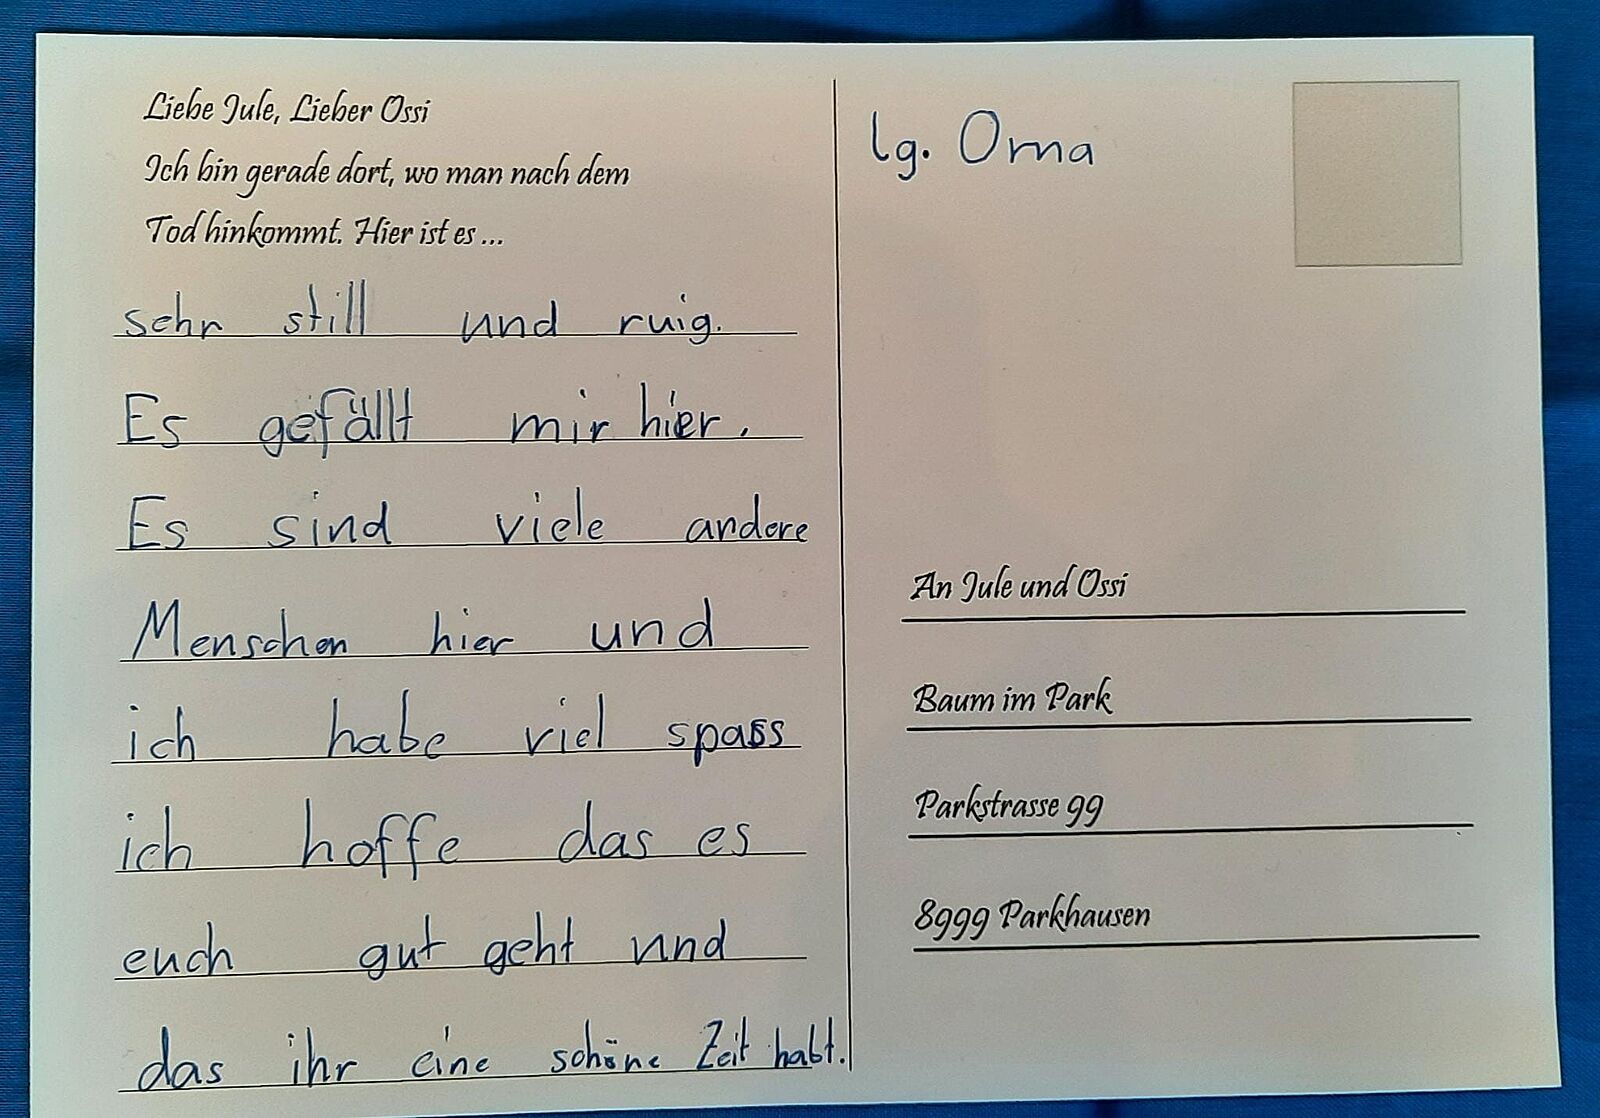 Liebe Jule, Lieber Ossi
Ich bin gerade dort, wo man nach dem
Tod hinkommt. Hier ist es ...
sehr still und ruig.
Es gefällt mir hier.
Es sind viele andere
Menschen hier und
ich habe viel spass
ich hoffe das es
euch gut geht und
das ihr eine schöne Zeit habt.
lg. Oma
An Jule und Ossi
Baum im Park
Parkstrasse 99
8999 Parkhausen